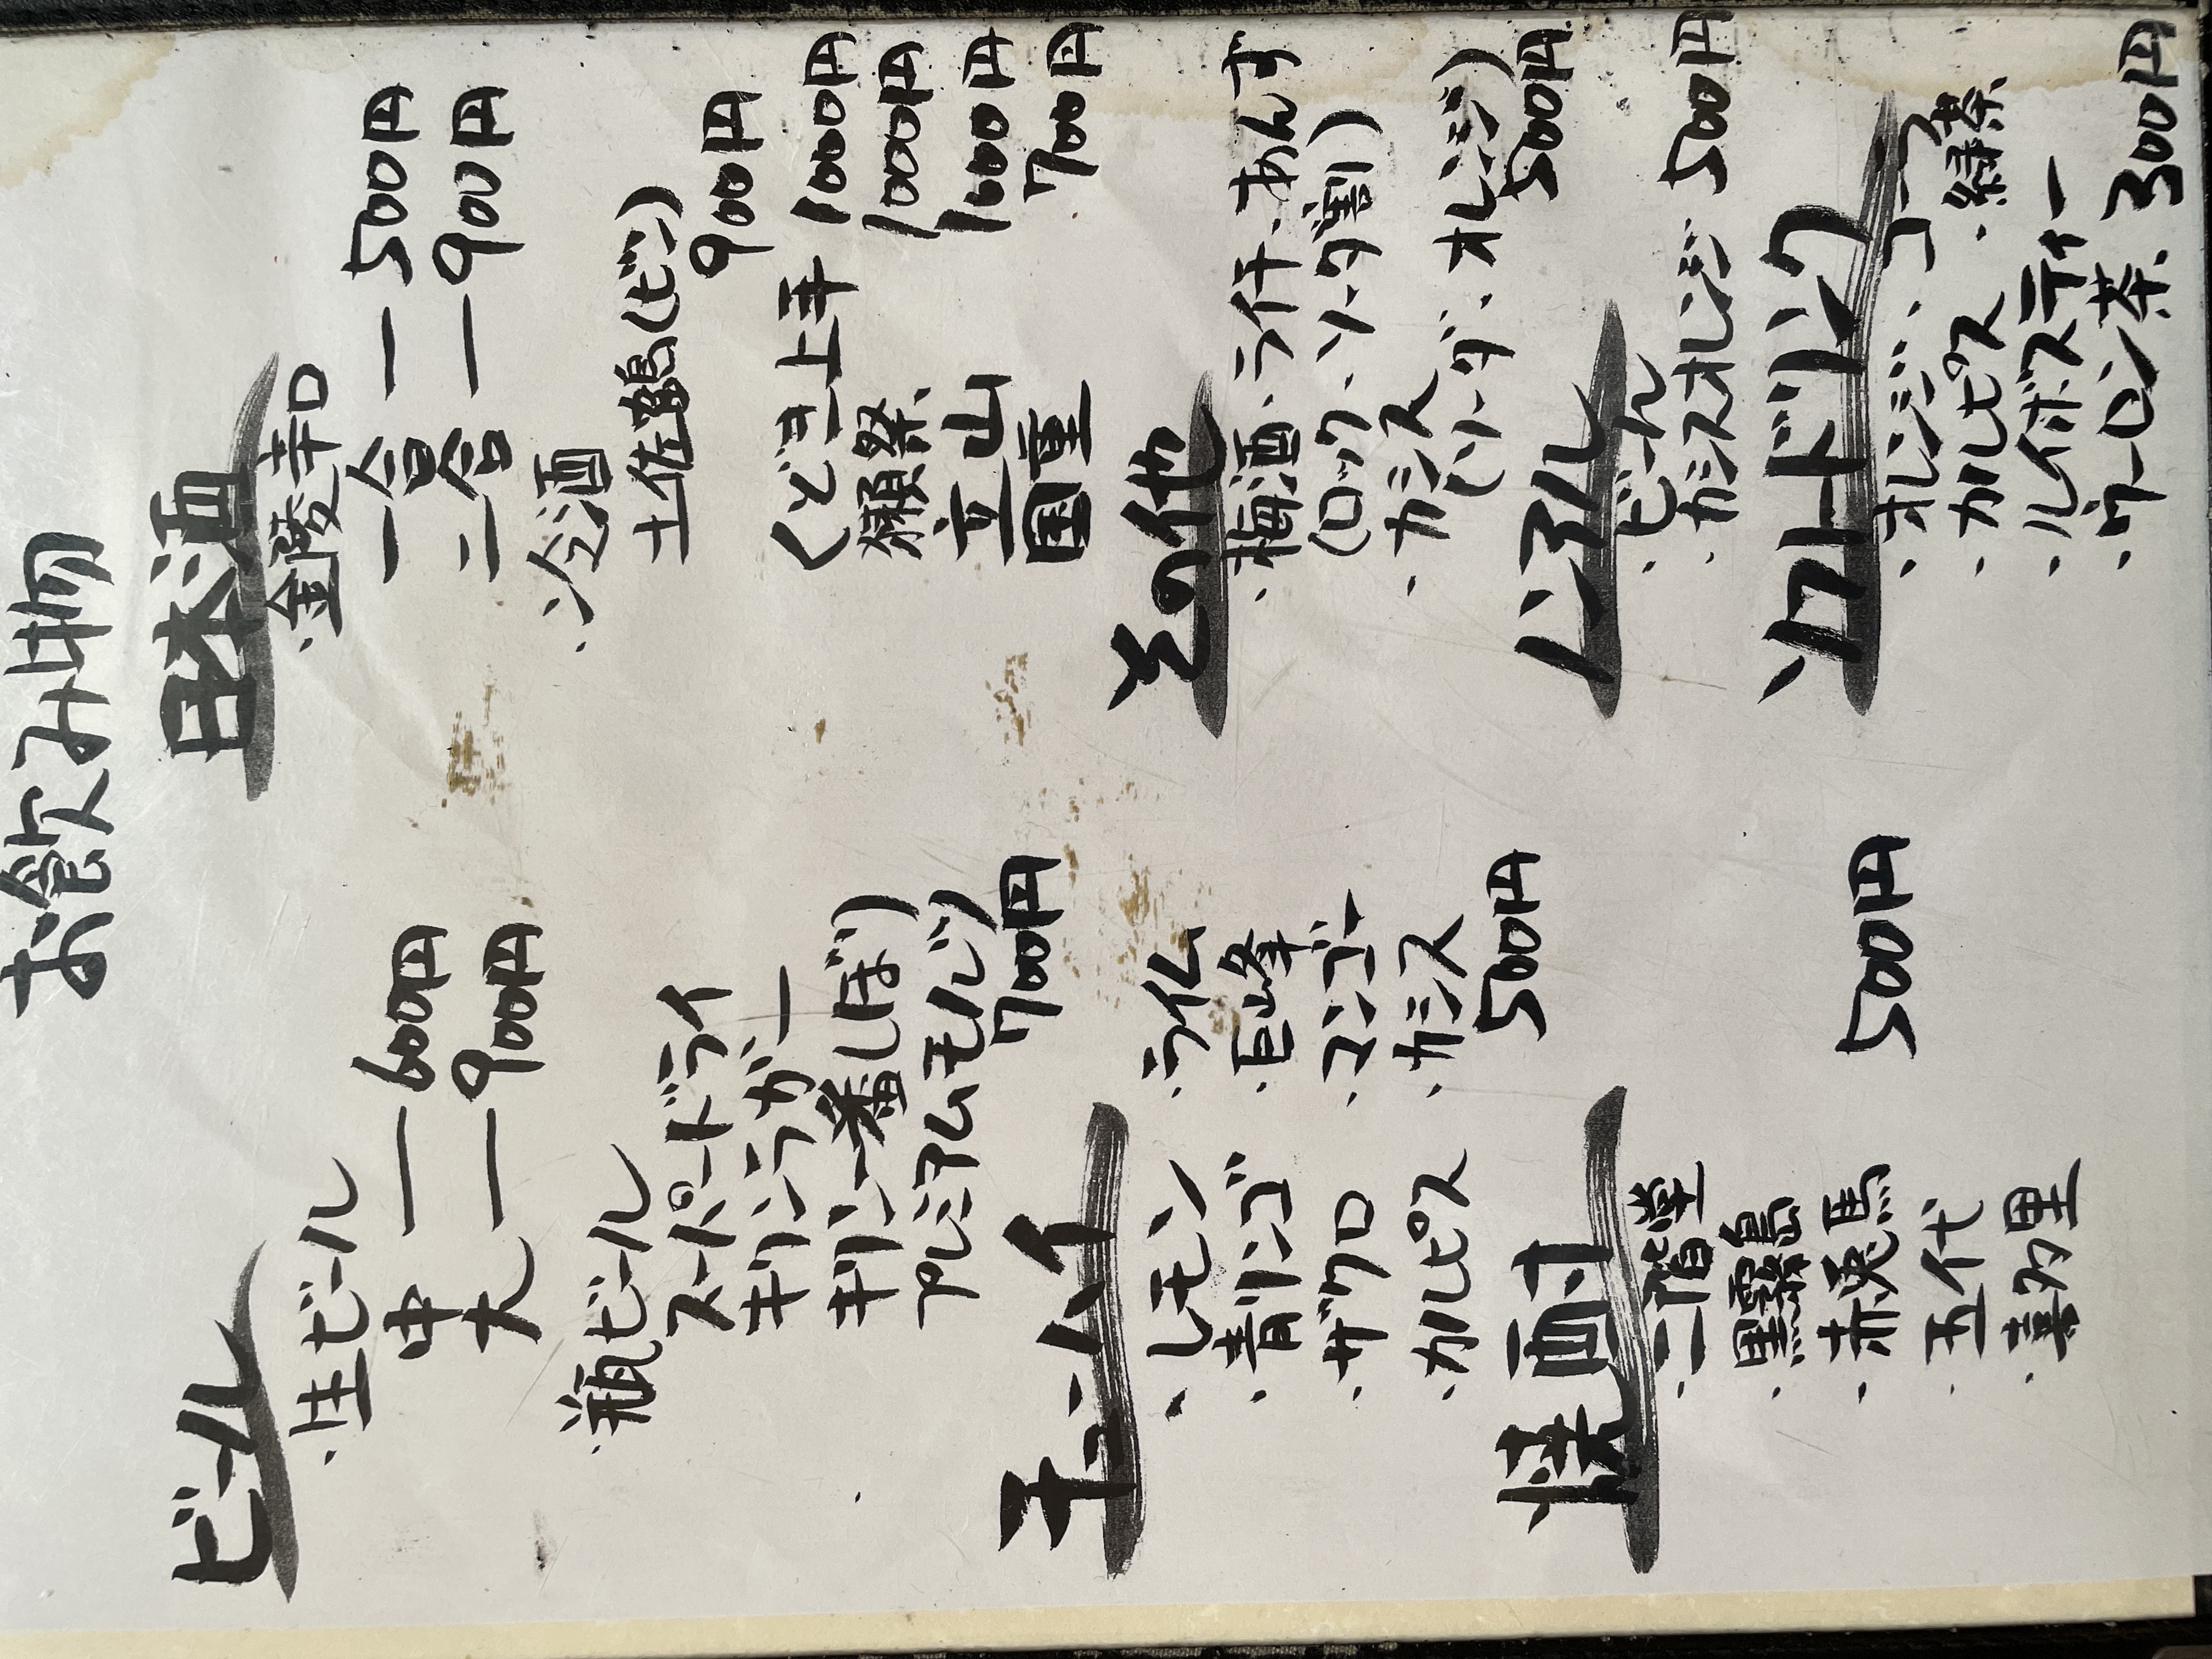 お飲み物
ビール
・生ビール
中 ― 600円
大 ― 900円
・瓶ビール
スーパードライ
キリンラガー
キリン一番しぼり)
プレミアムモルツ)
700円
チューハイ
・レモン ・ライム
・青リンゴ ・巨峰
・ザクロ ・マンゴー
・カルピス ・カシス
500円
焼酎
・二階堂
・黒霧島
・赤兎馬 500円
・五代
・喜多里
日本酒
・金陵辛口
一合 ― 500円
二合 ― 900円
・冷酒
土佐鶴(ビン)
900円
くどき上手 1000円
獺祭 1000円
立山 1000円
国重 700円
その他
・梅酒・ライチ・あんず
(ロック・ソーダ割)
・カシス
(ソーダ・オレンジ)
500円
ノンアル
・ビール
・カシスオレンジ 500円
ソフトドリンク
・オレンジ・コーラ
・カルピス ・緑茶
・ルイボスティー
・ウーロン茶 300円